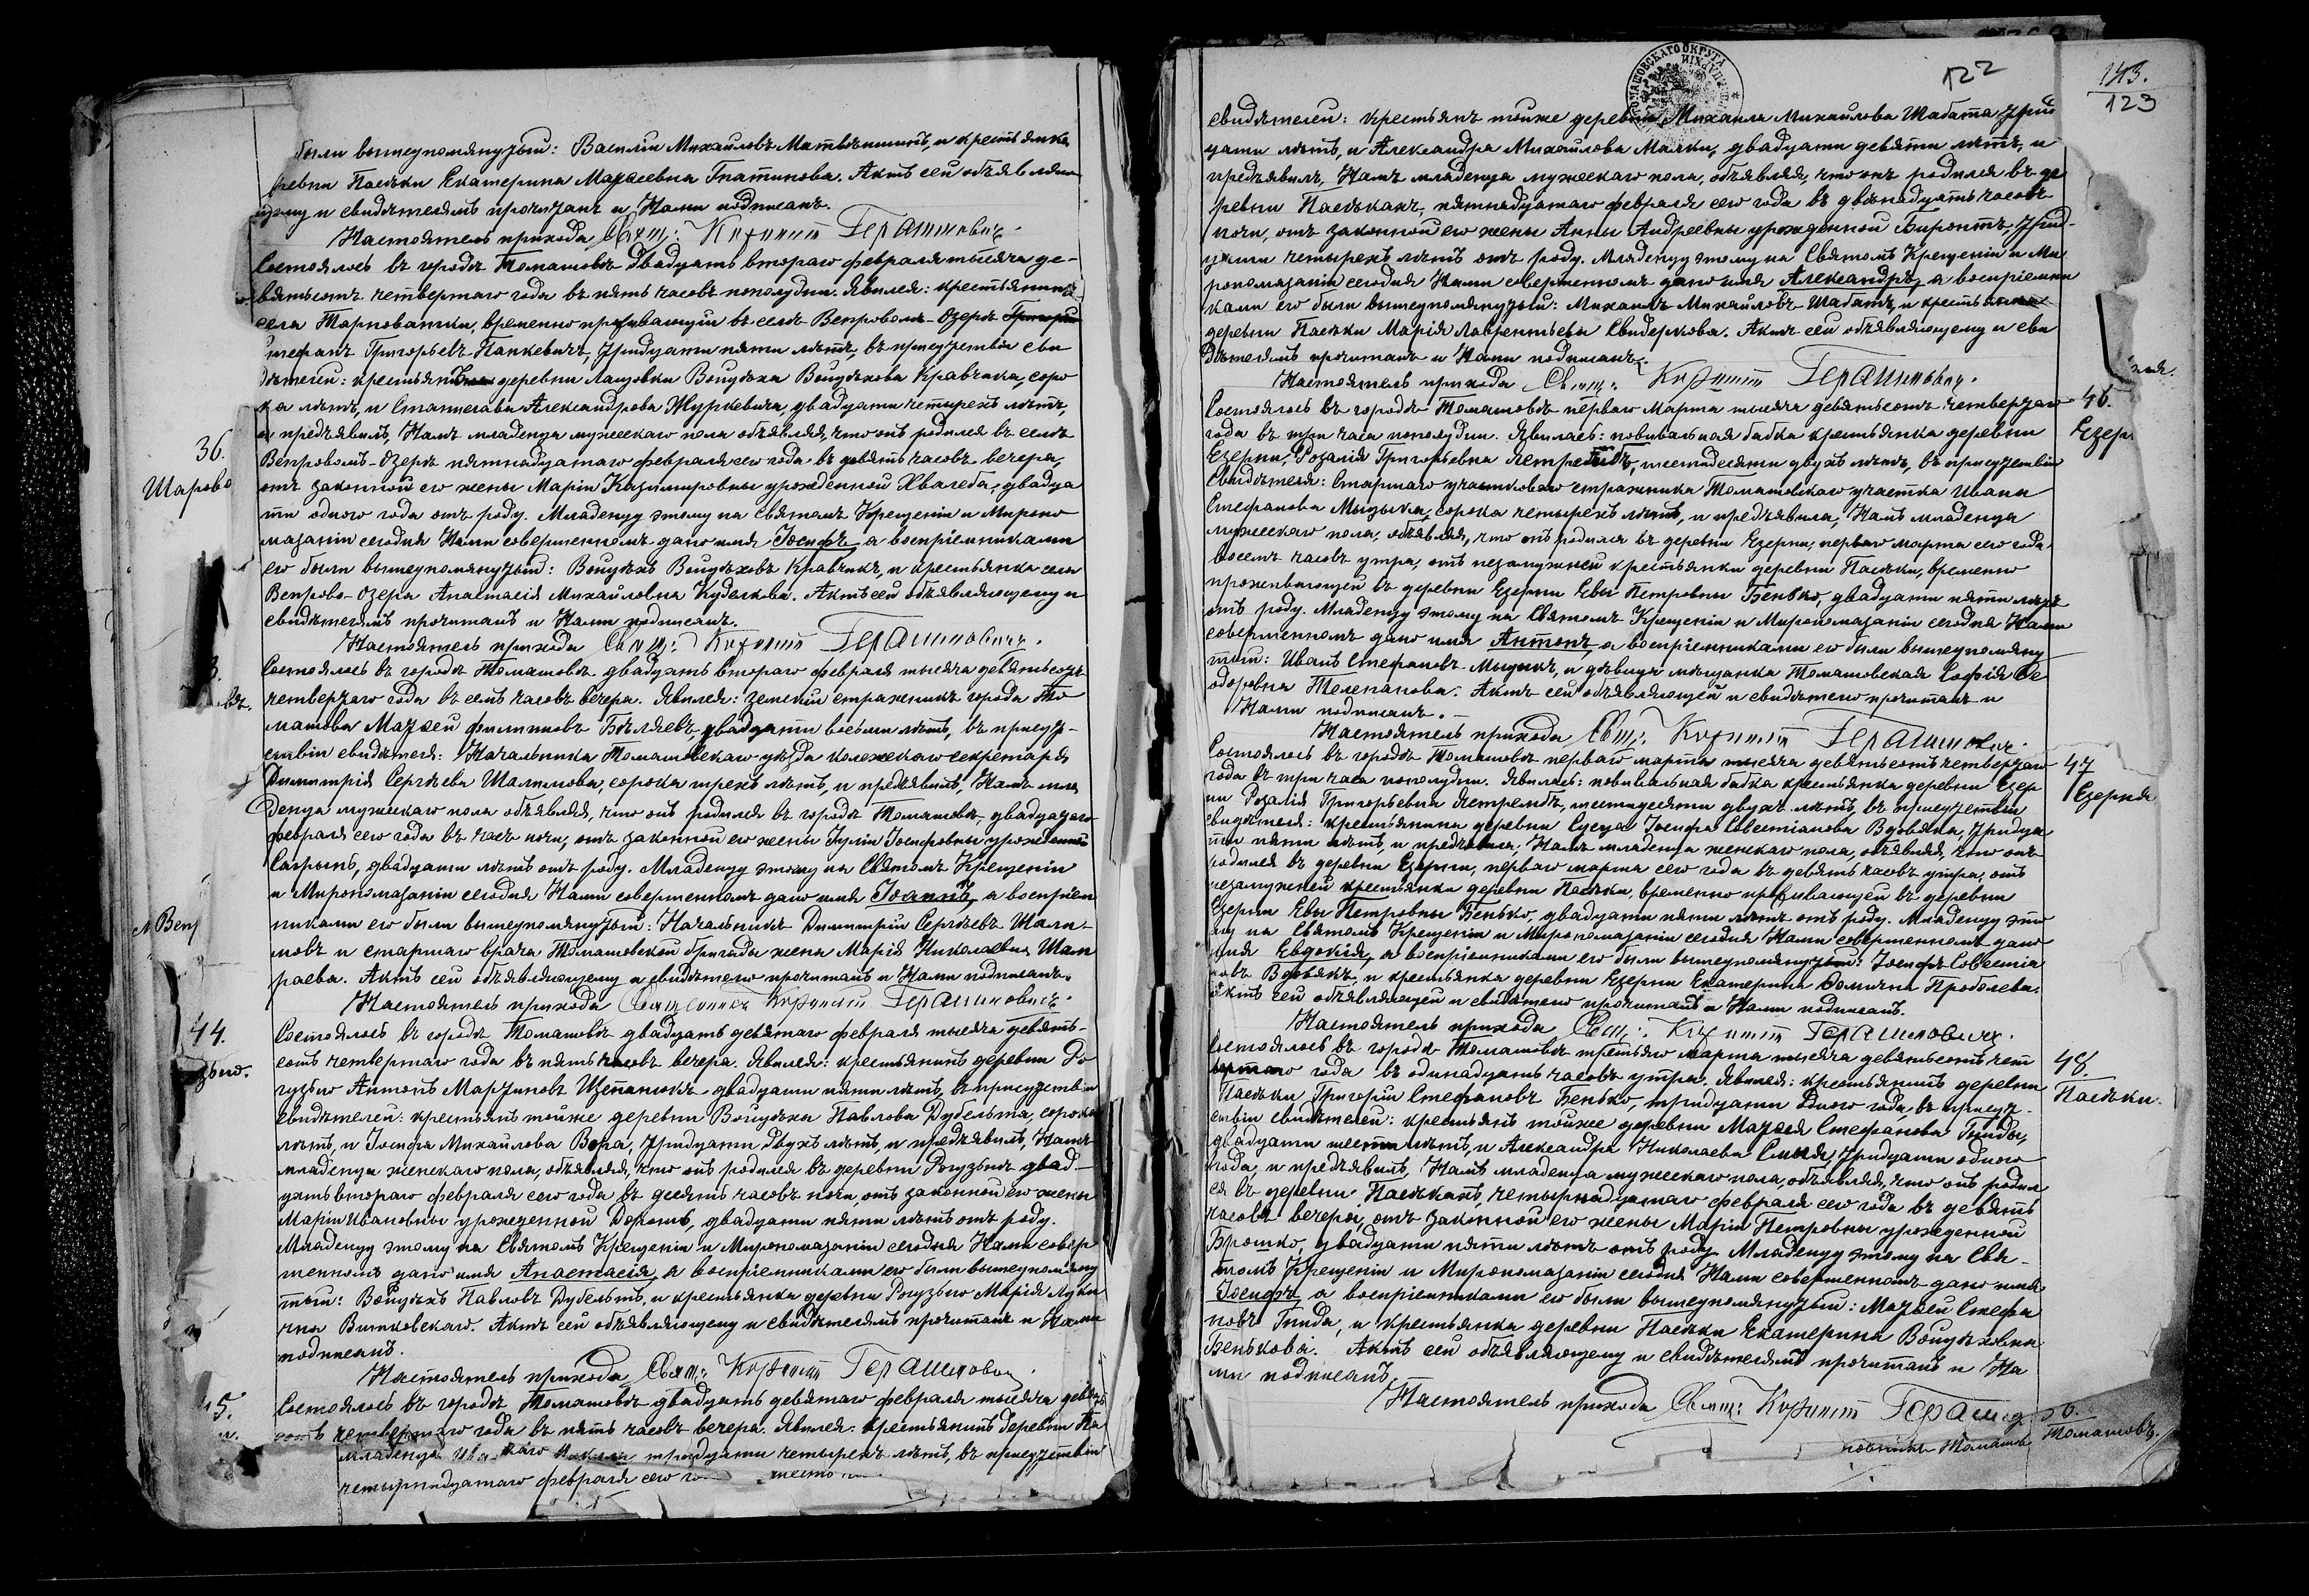 были вышеупомянутый: Василій Михайловъ Матвѣишинъ, и крестьянка
ревни Пасѣки Екатерина Матѳеевна Гнатикова. Актъ сей объявляю
щему и свидѣтелямъ прочитанъ и Нами подписанъ.
Настоятель прихода Свящ: Герашиновичъ.
Состоялось въ городѣ Томашовѣ двадцать втораго февраля тысяча де-
вятьсотъ четвертаго года въ пять часовъ пополудни. Явился: крестьянинъ
села Тарноватки, временно проживающій въ селѣ Вепровомъ-Озерѣ
Стефанъ Григорьевъ Панкевичъ, тридцати пяти лѣтъ, въ присутствіи сви
дѣтелей: крестьянъ деревни Лащовки Войцѣха Войцѣхова Кравчика, соро
ка лѣтъ, и Станислава Александрова Журкевича, двадцати четырехъ лѣтъ,
и предъявилъ Намъ младенца мужескаго пола объявляя, что онъ родился въ селѣ
Вепровомъ-Озерѣ пятнадцатаго февраля сего года въ девять часовъ вечера,
36.
отъ законной его жены Маріи Казимировны урожденной Хвалеба, двадца
Шарово
ти одного года отъ роду. Младенцу этому на Святомъ Крещеніи и Миропо
мазаніи сегодня Нами совершенномъ дано имя Іосифъ, а воспріемниками
его были вышеупомянутый: Войцѣхъ Войцѣховъ Кравчикъ, и крестьянка села
Вепрово-Озера Анастасія Михайловна Кудыкова. Актъ сей объявляющему и
свидѣтелямъ прочитанъ и Нами подписанъ.
Настоятель прихода Свящ: Герашиновичъ.
Состоялось въ городѣ Томашовѣ двадцать втораго февраля тысяча девятьсотъ
четвертаго года въ семь часовъ вечера. Явился: земскій стражникъ города То
машова Матѳей Филиповъ Бѣляевъ, двадцати восьми лѣтъ, въ присут-
ствіи свидѣтеля: Начальника Томашовскаго уѣзда колежскаго секретаря
Димитрія Сергѣева Шалимова, сорока трехъ лѣтъ, и предъявилъ Намъ мла
денца мужескаго пола объявляя, что онъ родился въ городѣ Томашовѣ, двадцатаго
февраля сего года въ часъ ночи, отъ законной его жены Юліи Іосифовны урожденной
двадцати лѣтъ отъ роду. Младенцу этому на Святомъ Крещеніи
и Миропомазаніи сегодня Нами совершенномъ дано имя Іоаннъ, а воспріем
никами его были вышеупомянутый: Начальникъ Димитрій Сергѣевъ Шали-
мовъ и старшаго врача Томашовской бригады жена Марія Николаевна Шам
раева. Актъ сей объявляющему и свидѣтелю прочитанъ и Нами подписанъ.
Настоятель прихода Священникъ Герашиновичъ.
44.
Состоялось въ городѣ Томашовѣ двадцать девятаго февраля тысяча девять-
сотъ четвертаго года въ пять часовъ вечера. Явился: крестьянинъ деревни Ро
гузьно Антонъ Мартиновъ Щепанюкъ двадцати пяти лѣтъ, въ присутствіи
свидѣтелей: крестьянъ тойже деревни Войцѣха Павлова Дубельта, сорока
лѣтъ, и Іосифа Михайлова Вера, тридцати двухъ лѣтъ, и предъявилъ Намъ
младенца женскаго пола, объявляя, что онъ родился въ деревни Рогузьнѣ двад-
цать втораго февраля сего года въ десять часовъ ночи, отъ законной его жены
Маріи Ивановны урожденной Дорошъ, двадцати пяти лѣтъ отъ роду.
Младенцу этому на Святомъ Крещеніи и Миропомазаніи сегодня Нами совер
шенномъ дано имя Анастасія, а воспріемниками его были вышеупомяну
тый: Войцѣхъ Павловъ Дубельтъ, и крестьянка деревни Рогузьно Марія Луки
чна Витковскаго. Актъ сей объявляющему и свидѣтелямъ прочитанъ и Нами
подписанъ.
Настоятель прихода Свящ: Герашинович
45.
Состоялось въ городѣ Томашовѣ двадцать девятаго февраля тысяча девять
сотъ четвертаго года въ пять часовъ вечера. Явился: крестьянинъ деревни Па
младенца тридцати четырехъ лѣтъ, въ присутствіи
четырнадцатаго февраля сего
122
143.
123
свидѣтелей: крестьянъ тойже деревни Михаила Михайлова Шабата, трид
цати лѣтъ, и Александра Михайлова Малки, двадцати девяти лѣтъ, и
предъявилъ Намъ младенца мужескаго пола, объявляя, что онъ родился въ де
ревни Пасѣкахъ, пятнадцатаго февраля сего года въ двѣнадцать часовъ
ночи, отъ законной его жены Анны Андреевны урожденной Биронтъ, трид-
цати четырехъ лѣтъ отъ роду. Младенцу этому на Святомъ Крещеніи и Ми
ропомазаніи сегодня Нами совершенномъ дано имя Александръ, а воспріемни
ками его были вышеупомянутый: Михаилъ Михайловъ Шабатъ, и крестьянка
деревни Пасѣки Марія Лаврентьевы Свидеркова. Актъ сей объявляющему и сви
дѣтелямъ прочитанъ и Нами подписанъ.
Настоятель прихода Свящ: Герашиновичъ.
46.
Состоялось въ городѣ Томашовѣ перваго Марта тысяча девятьсотъ четвертаго
года въ три часа пополудни. Явилась: повивальная бабка крестьянка деревни
Езер
Езерни, Розалія Григорьевна Ястрембъ, шестидесяти двухъ лѣтъ, въ присутствіи
Свидѣтеля: Старшаго участковаго стражника Томашовскаго участка Ивана
Стефанова Мыцыка, сорока четырехъ лѣтъ, и предъявила Намъ младенца
мужескаго пола, объявляя, что онъ родился въ деревни Езерни, перваго марта сего года,
восемь часовъ утра, отъ незамужней крестьянки деревни Пасѣки, временно
проживающей въ деревни Езерни Евы Петровны Бенько, двадцати пяти лѣтъ
отъ роду. Младенцу этому на Святомъ Крещеніи и Миропомазаніи сегодня Нами
совершенномъ дано имя Антонъ, а воспріемниками его были вышеупомяну
тый: Иванъ Стефановъ Мыцыкъ, и дѣвица мѣщанка Томашовская Софія Ѳе
одоровна Телепанова. Актъ сей объявляющей и свидѣтелю прочитанъ и
Нами подписанъ.
Настоятель прихода Свящ: Герашинович.
47
Состоялось въ городѣ Томашовѣ перваго марта тысяча девятьсотъ четвертаго
года въ три часа пополудни. Явилась: повивальная бабка крестьянка деревни Езер
Езерня
ни Розалія Григорьевна Ястрембъ, шестидесяти двухъ лѣтъ, въ присутствіи
свидѣтеля: крестьянина деревни Сусца Іосифа Севестіанова Вдовяка, тридца
ти пяти лѣтъ, и предъявила Намъ младенца женскаго пола, объявляя, что онъ
родился въ деревни Езерни, перваго марта сего года въ девять часовъ утра, отъ
незамужней крестьянки деревни Пасѣки, временно проживающей въ деревни
Езерни Евы Петровны Бенько, двадцати пяти лѣтъ отъ роду. Младенцу это
му на Святомъ Крещеніи и Миропомазаніи сегодня Нами совершенномъ дано
имя Евдокія, а воспріемниками его были вышеупомянутый: Іосифъ Севестіа
новъ Вдовякъ, и крестьянка деревни Езерни Екатерина
Актъ сей объявляющей и свидѣтелю прочитанъ и Нами подписанъ.
Настоятель прихода Свящ: Герашинович.
48.
Состоялось въ городѣ Томашовѣ третьяго марта тысяча девятьсотъ чет
вертаго года въ одинадцать часовъ утра. Явился: крестьянинъ деревни
Пасѣки.
Пасѣки Григорій Стефановъ Бенько, тридцати одного года, въ присут-
ствіи свидѣтелей: крестьянъ тойже деревни Матѳея Стефанова Гнида,
двадцати шести лѣтъ, и Александра Николаева Смыя, тридцати одного
года, и предъявилъ Намъ младенца мужескаго пола, объявляя, что онъ родил
ся въ деревни Пасѣкахъ, четырнадцатаго февраля сего года въ девять
часовъ вечера, отъ законной его жены Маріи Петровны урожденной
Брошко, двадцати пяти лѣтъ отъ роду. Младенцу этому на Свя-
томъ Крещеніи и Миропомазаніи сегодня Нами совершенномъ дано имя
Іосифъ, а воспріемниками его были вышеупомянутый: Матѳей Стефа
новъ Гнида, и крестьянка деревни Пасѣки Екатерина Войцѣховна
Бенькова. Актъ сей объявляющему и свидѣтелямъ прочитанъ и На
ми подписанъ.
Настоятель прихода Свящ:
Томашовъ.